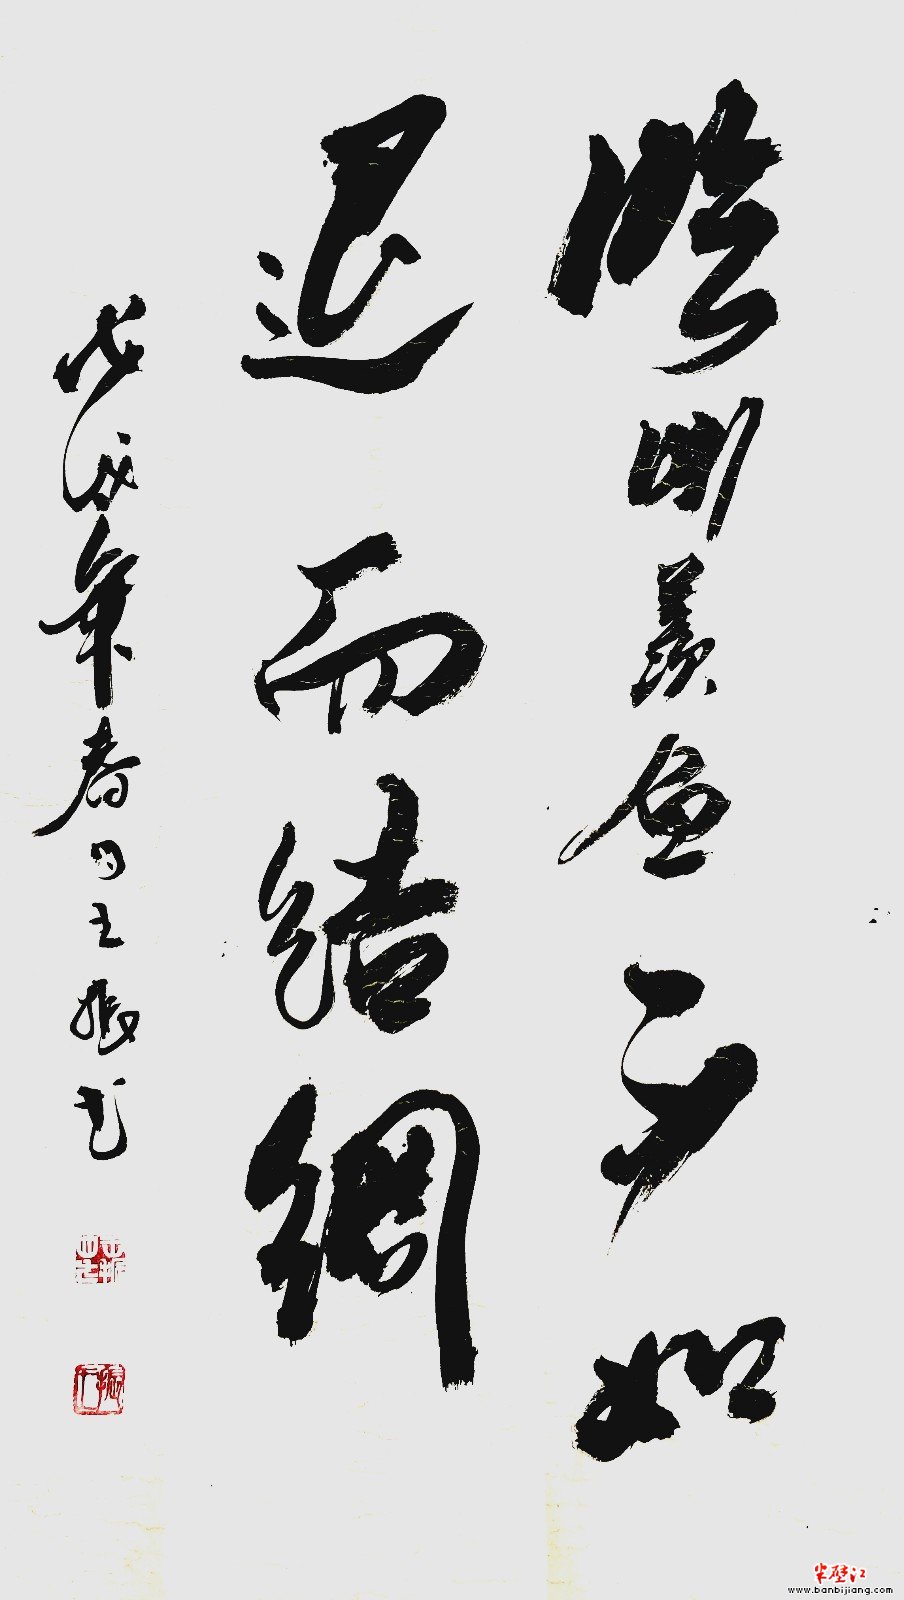 臨渊羡鱼不如
退而結網
戊戌年春月王振书
半壁江
www.banbijiang.com